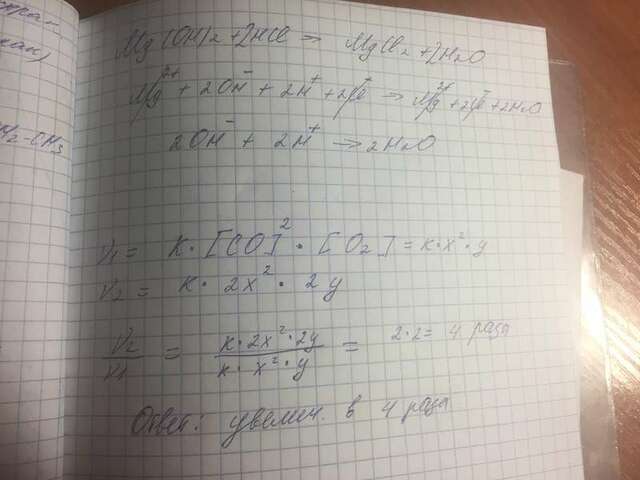 Mg(OH)₂ + 2HCl → MgCl₂ + 2H₂O
Mg²⁺ + 2OH⁻ + 2H⁺ + 2Cl⁻ → Mg²⁺ + 2Cl⁻ + 2H₂O
2OH⁻ + 2H⁺ → 2H₂O
V₁ = k · [CO]² · [O₂] = k · x² · y
V₂ = k · 2x² · 2y
V₂/V₁ = k · 2x² · 2y / k · x² · y = 2 · 2 = 4 раза
Ответ: увелич. в 4 раза
CH₃